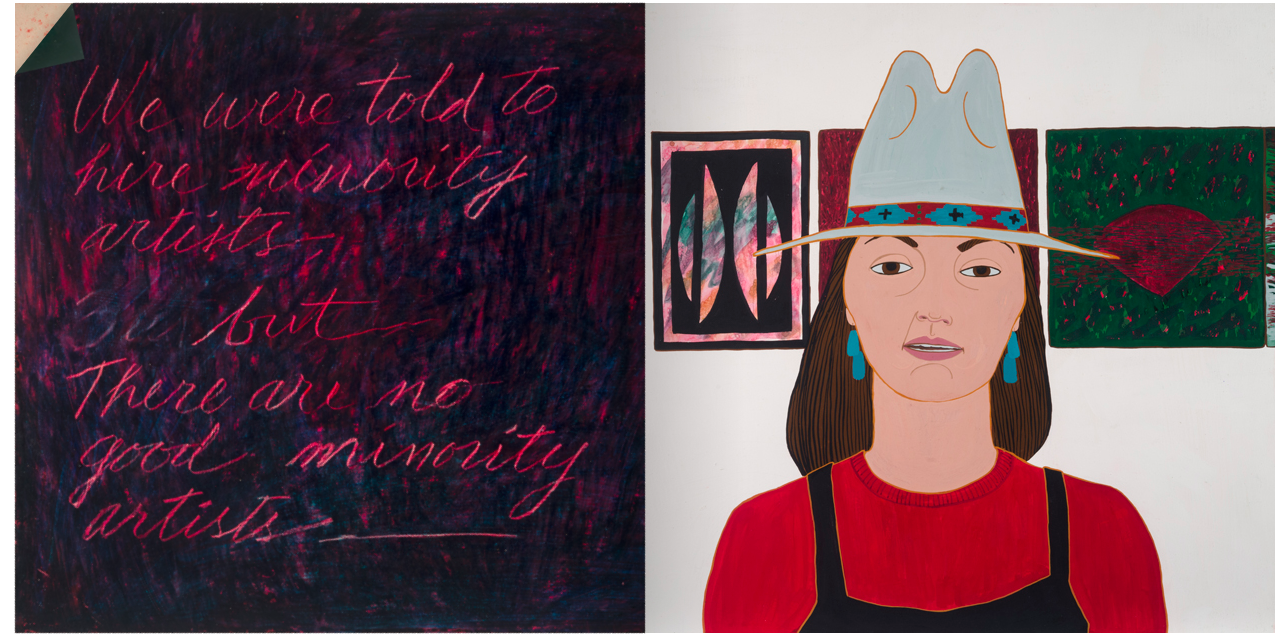 We were told to
hire minority
artists
but
There are no
good minority
artists